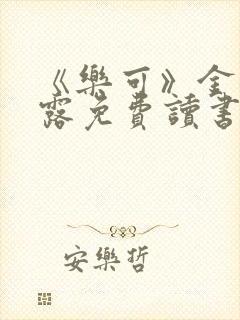 《樂可》金
露免費讀書
安樂哲